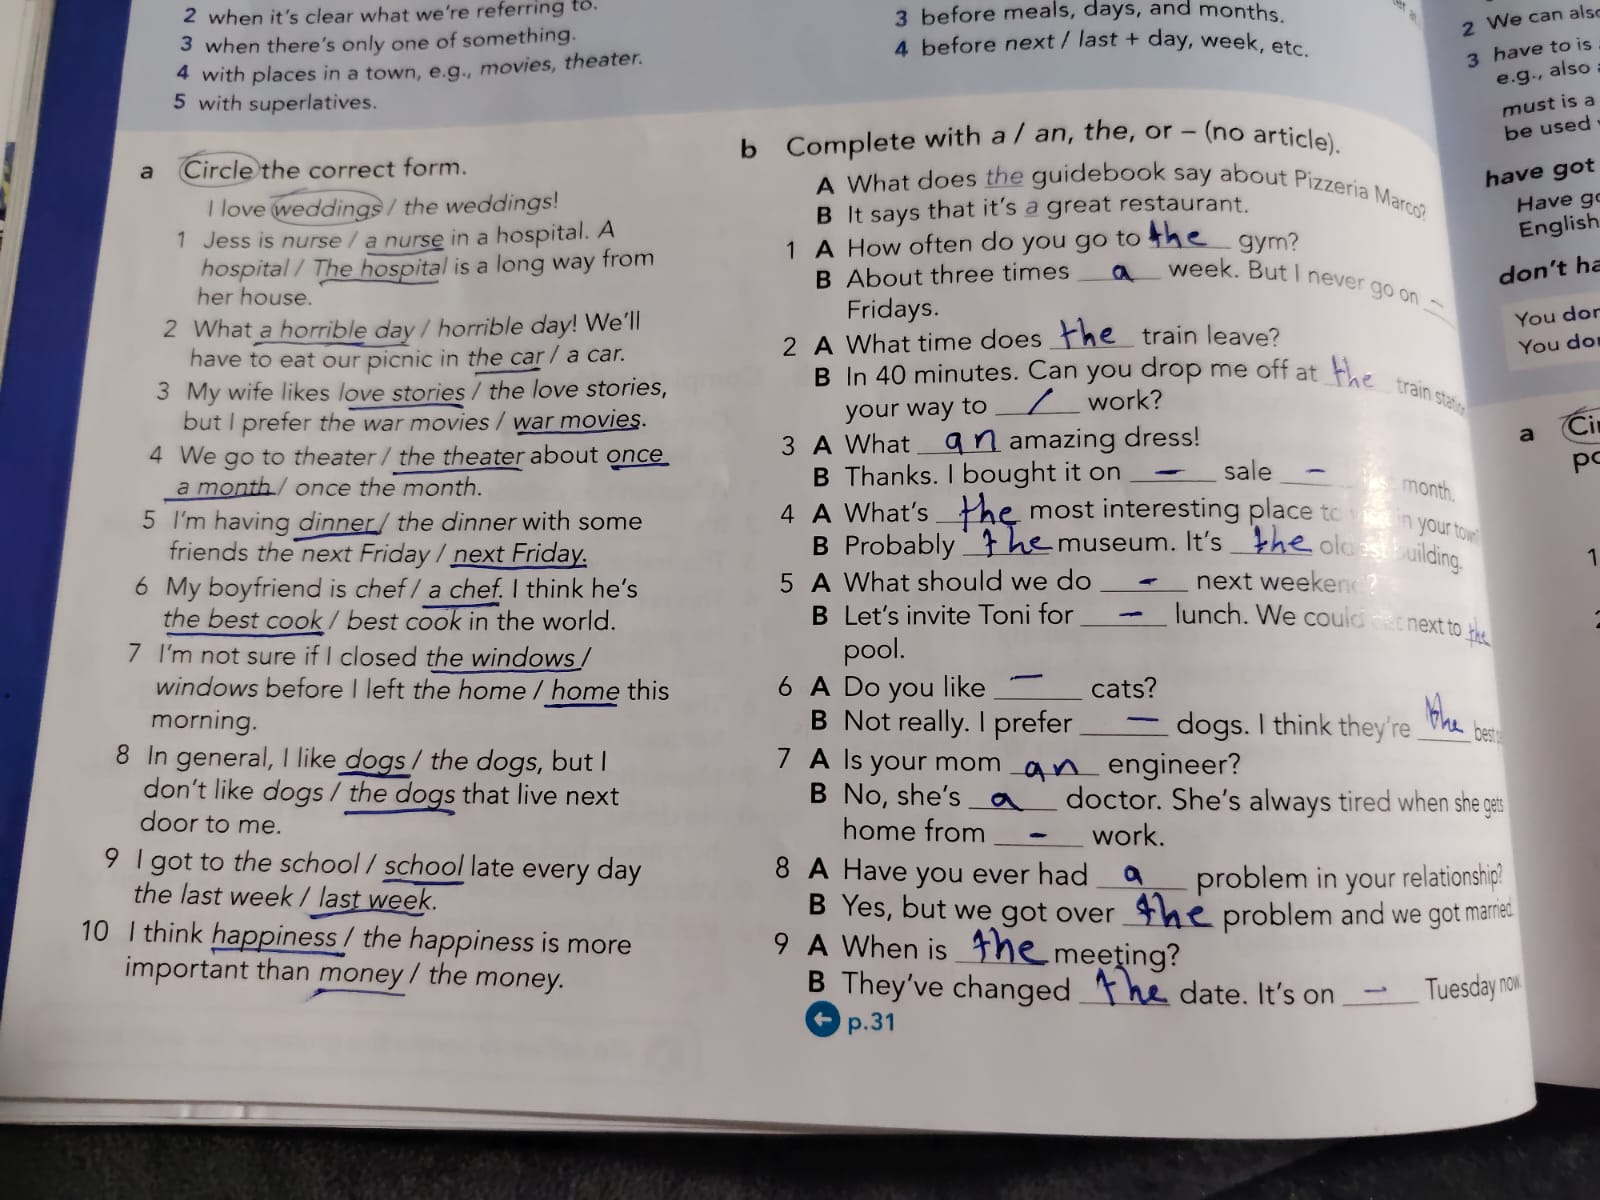 2 when it's clear what we're referring to.
3 when there's only one of something.
4 with places in a town, e.g., movies, theater.
5 with superlatives.
a Circle the correct form.
I love weddings / the weddings!
1 Jess is nurse / a nurse in a hospital. A
hospital / The hospital is a long way from
her house.
2 What a horrible day / horrible day! We'll
have to eat our picnic in the car / a car.
3 My wife likes love stories / the love stories,
but I prefer the war movies / war movies.
4 We go to theater / the theater about once
a month / once the month.
5 I'm having dinner / the dinner with some
friends the next Friday / next Friday.
6 My boyfriend is chef / a chef. I think he's
the best cook / best cook in the world.
7 I'm not sure if I closed the windows /
windows before I left the home / home this
morning.
8 In general, I like dogs / the dogs, but I
don't like dogs / the dogs that live next
door to me.
9 I got to the school / school late every day
the last week / last week.
10 I think happiness / the happiness is more
important than money / the money.
3 before meals, days, and months.
4 before next / last + day, week, etc.
b Complete with a / an, the, or – (no article).
A What does the guidebook say about Pizzeria Marco?
B It says that it's a great restaurant.
1 A How often do you go to the gym?
B About three times a week. But I never go on –
Fridays.
2 A What time does the train leave?
B In 40 minutes. Can you drop me off at the train
your way to / work?
3 A What an amazing dress!
B Thanks. I bought it on – sale – month.
4 A What's the most interesting place to in your town?
B Probably the museum. It's the oldest building.
5 A What should we do - next weekend?
B Let's invite Toni for – lunch. We could next to the
pool.
6 A Do you like – cats?
B Not really. I prefer – dogs. I think they're the best
7 A Is your mom an engineer?
B No, she's a doctor. She's always tired when she gets
home from - work.
8 A Have you ever had a problem in your relationship?
B Yes, but we got over the problem and we got married.
9 A When is the meeting?
B They've changed the date. It's on – Tuesday now.
p.31
2 We can also
3 have to is
e.g., also
must is a
be used
have got
Have go
English
don't ha
You don
You don
a Cir
po
1